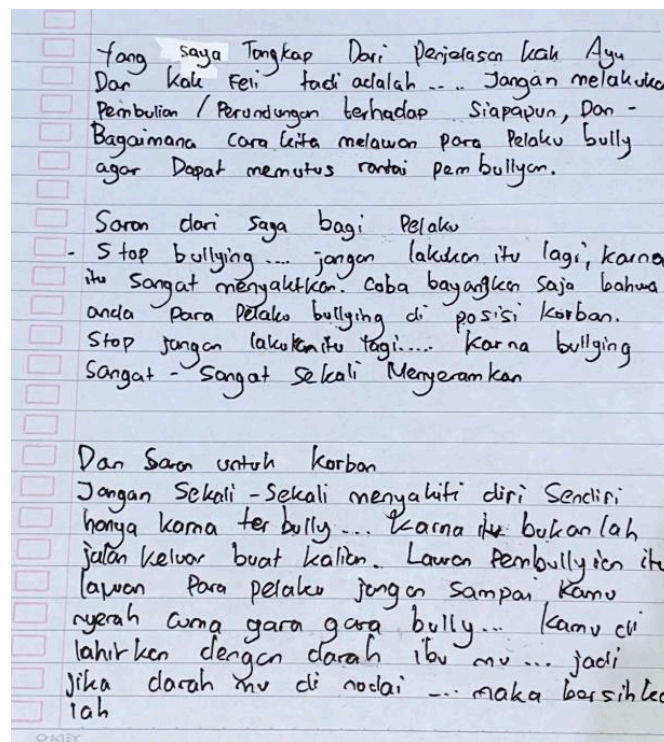 Yang saya Tangkap Dari Penjelasan kak Ayu
Dan kak Feli tadi adalah .... Jangan melakuka
Pembulian / Perundungan terhadap Siapapun, Dan -
Bagaimana cara kita melawan para Pelaku bully
agar Dapat memutus rantai pembullyan.
Saran dari saya bagi Pelaku
- Stop bullying .... jangan lakukan itu lagi, karna
itu Sangat menyakitkan. Coba bayangkan saja bahwa
anda Para Pelaku bullying di posisi korban.
Stop jangan lakukan itu lagi.... karna bullging
Sangat - Sangat Sekali Menyeramkan
Dan Saran untuk korban
Jangan Sekali - Sekali menyakiti diri Sendiri
hanya karna ter bully ... karna itu bukan lah
jalan keluar buat kalian. Lawan Pembullyian itu
lawan Para pelaku jangan sampai kamu
nyerah cuma gara gara bully... kamu di
lahirkan dengan darah ibu mu ... jadi
Jika darah mu di nodai ... maka bersihka
lah
OKEY